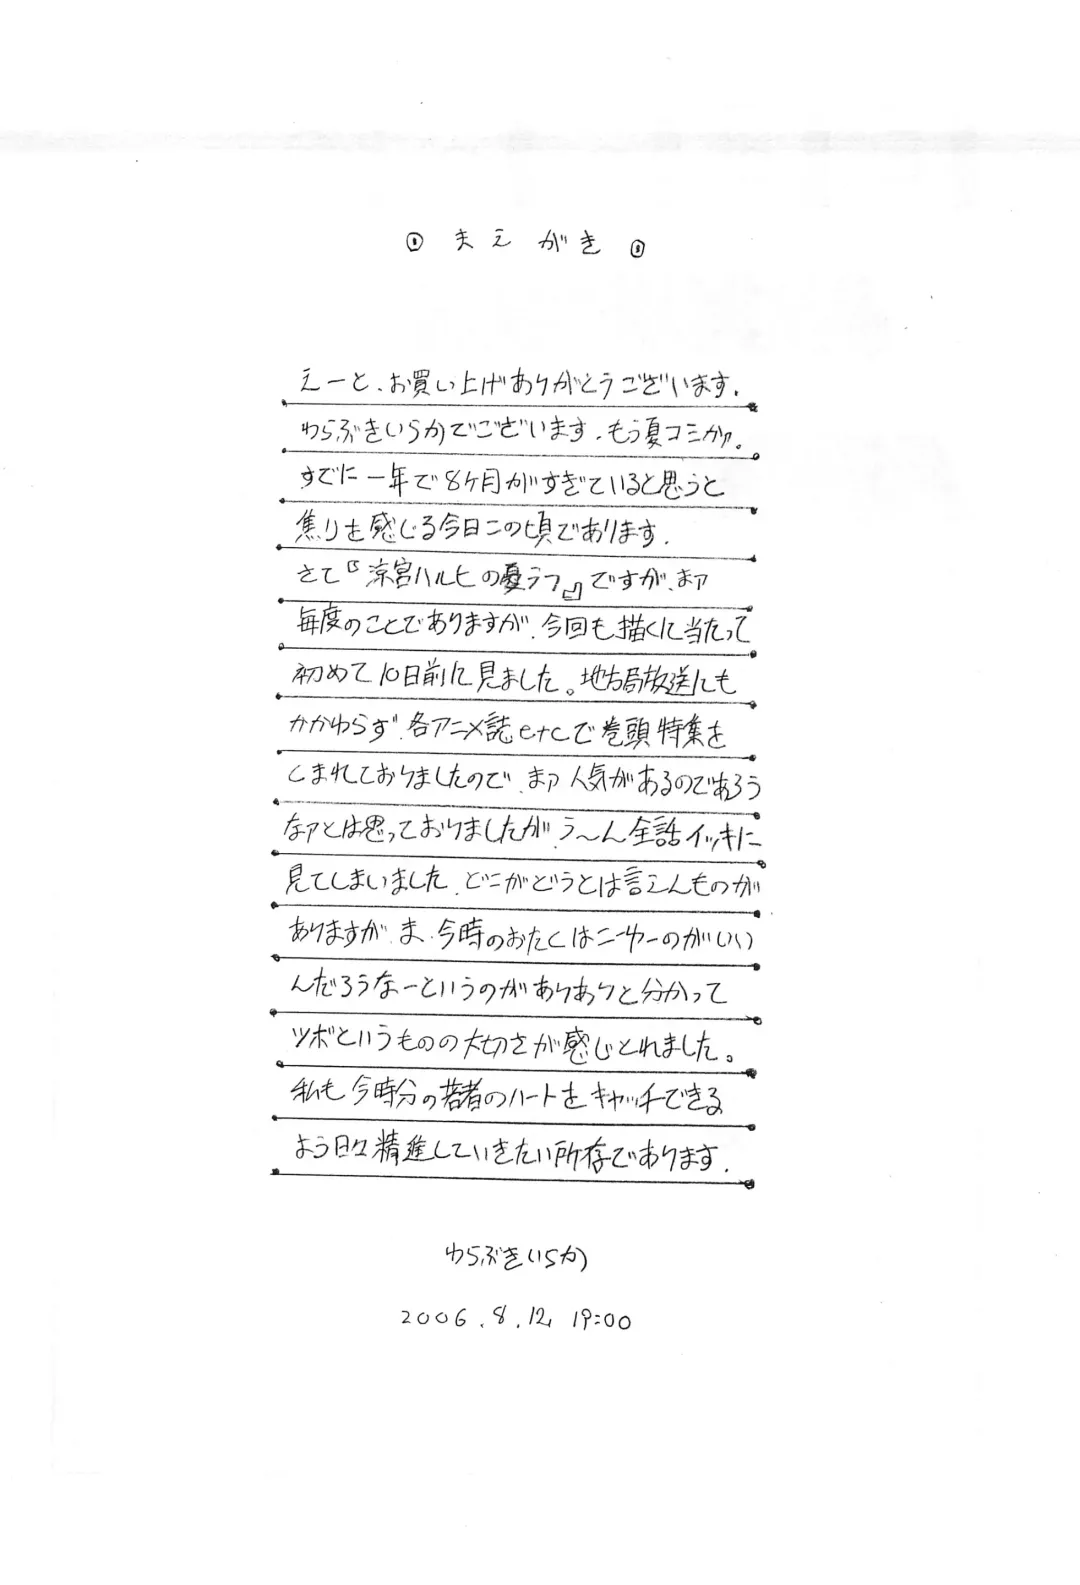 まえがき
えーと、お買い上げありがとうございます.
わらぶきいらかでございます.もう夏コミかァ。
すでに一年で8ケ月がすぎていると思うと
焦りを感じる今日この頃であります.
さて『涼宮ハルヒの憂ラフ』ですが、まァ
毎度のことでありますが、今回も描くに当たって
初めて10日前に見ました。地方局放送にも
かかわらず、各アニメ誌etcで巻頭特集を
くまれておりましたので、まァ人気があるのであろう
なァとは思っておりましたが、う〜ん全話イッキに
見てしまいました、どこがどうとは言えんものが
ありますが、ま、今時のおたくはこーゆーのがいい
んだろうなーというのがありありと分かって
ツボというものの大切さが感じとれました。
私も今時分の若者のハートをキャッチできる
よう日々精進していきたい所存であります.
わらぶきいらか
2006.8.12 19:00